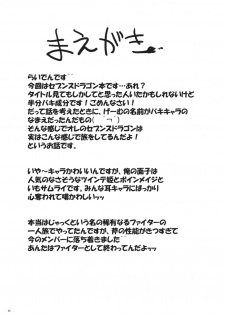 まえがき
らいでんです
今回はセブンスドラゴン本です…あれ？
タイトル見てもしかしてと思った人いたかもしれないけど
半分バキ成分です！ごめんなさい！
だって話を考えたときに、げーむの名前がバキキャラの
まえだったんだもの(　´¬｀)
そんな感じでオレのセブンスドラゴンは
実はこんな感じで旅をしてるんだよ！
というお話です。
いや～キャラかわいいんですが、俺の面子は
人気のなさそうなツインテ姫とボインメイジと
いもサムライです。みんな耳キャラにばっかり
心奪われて嘆かわしいッ
本当はじゃっくという名の稀有なるファイターの
一人旅でやってたんですが、斧の性能がきつすぎて
今のメンバーに落ち着きました
あんたはファイターとして終わってんだよッッ